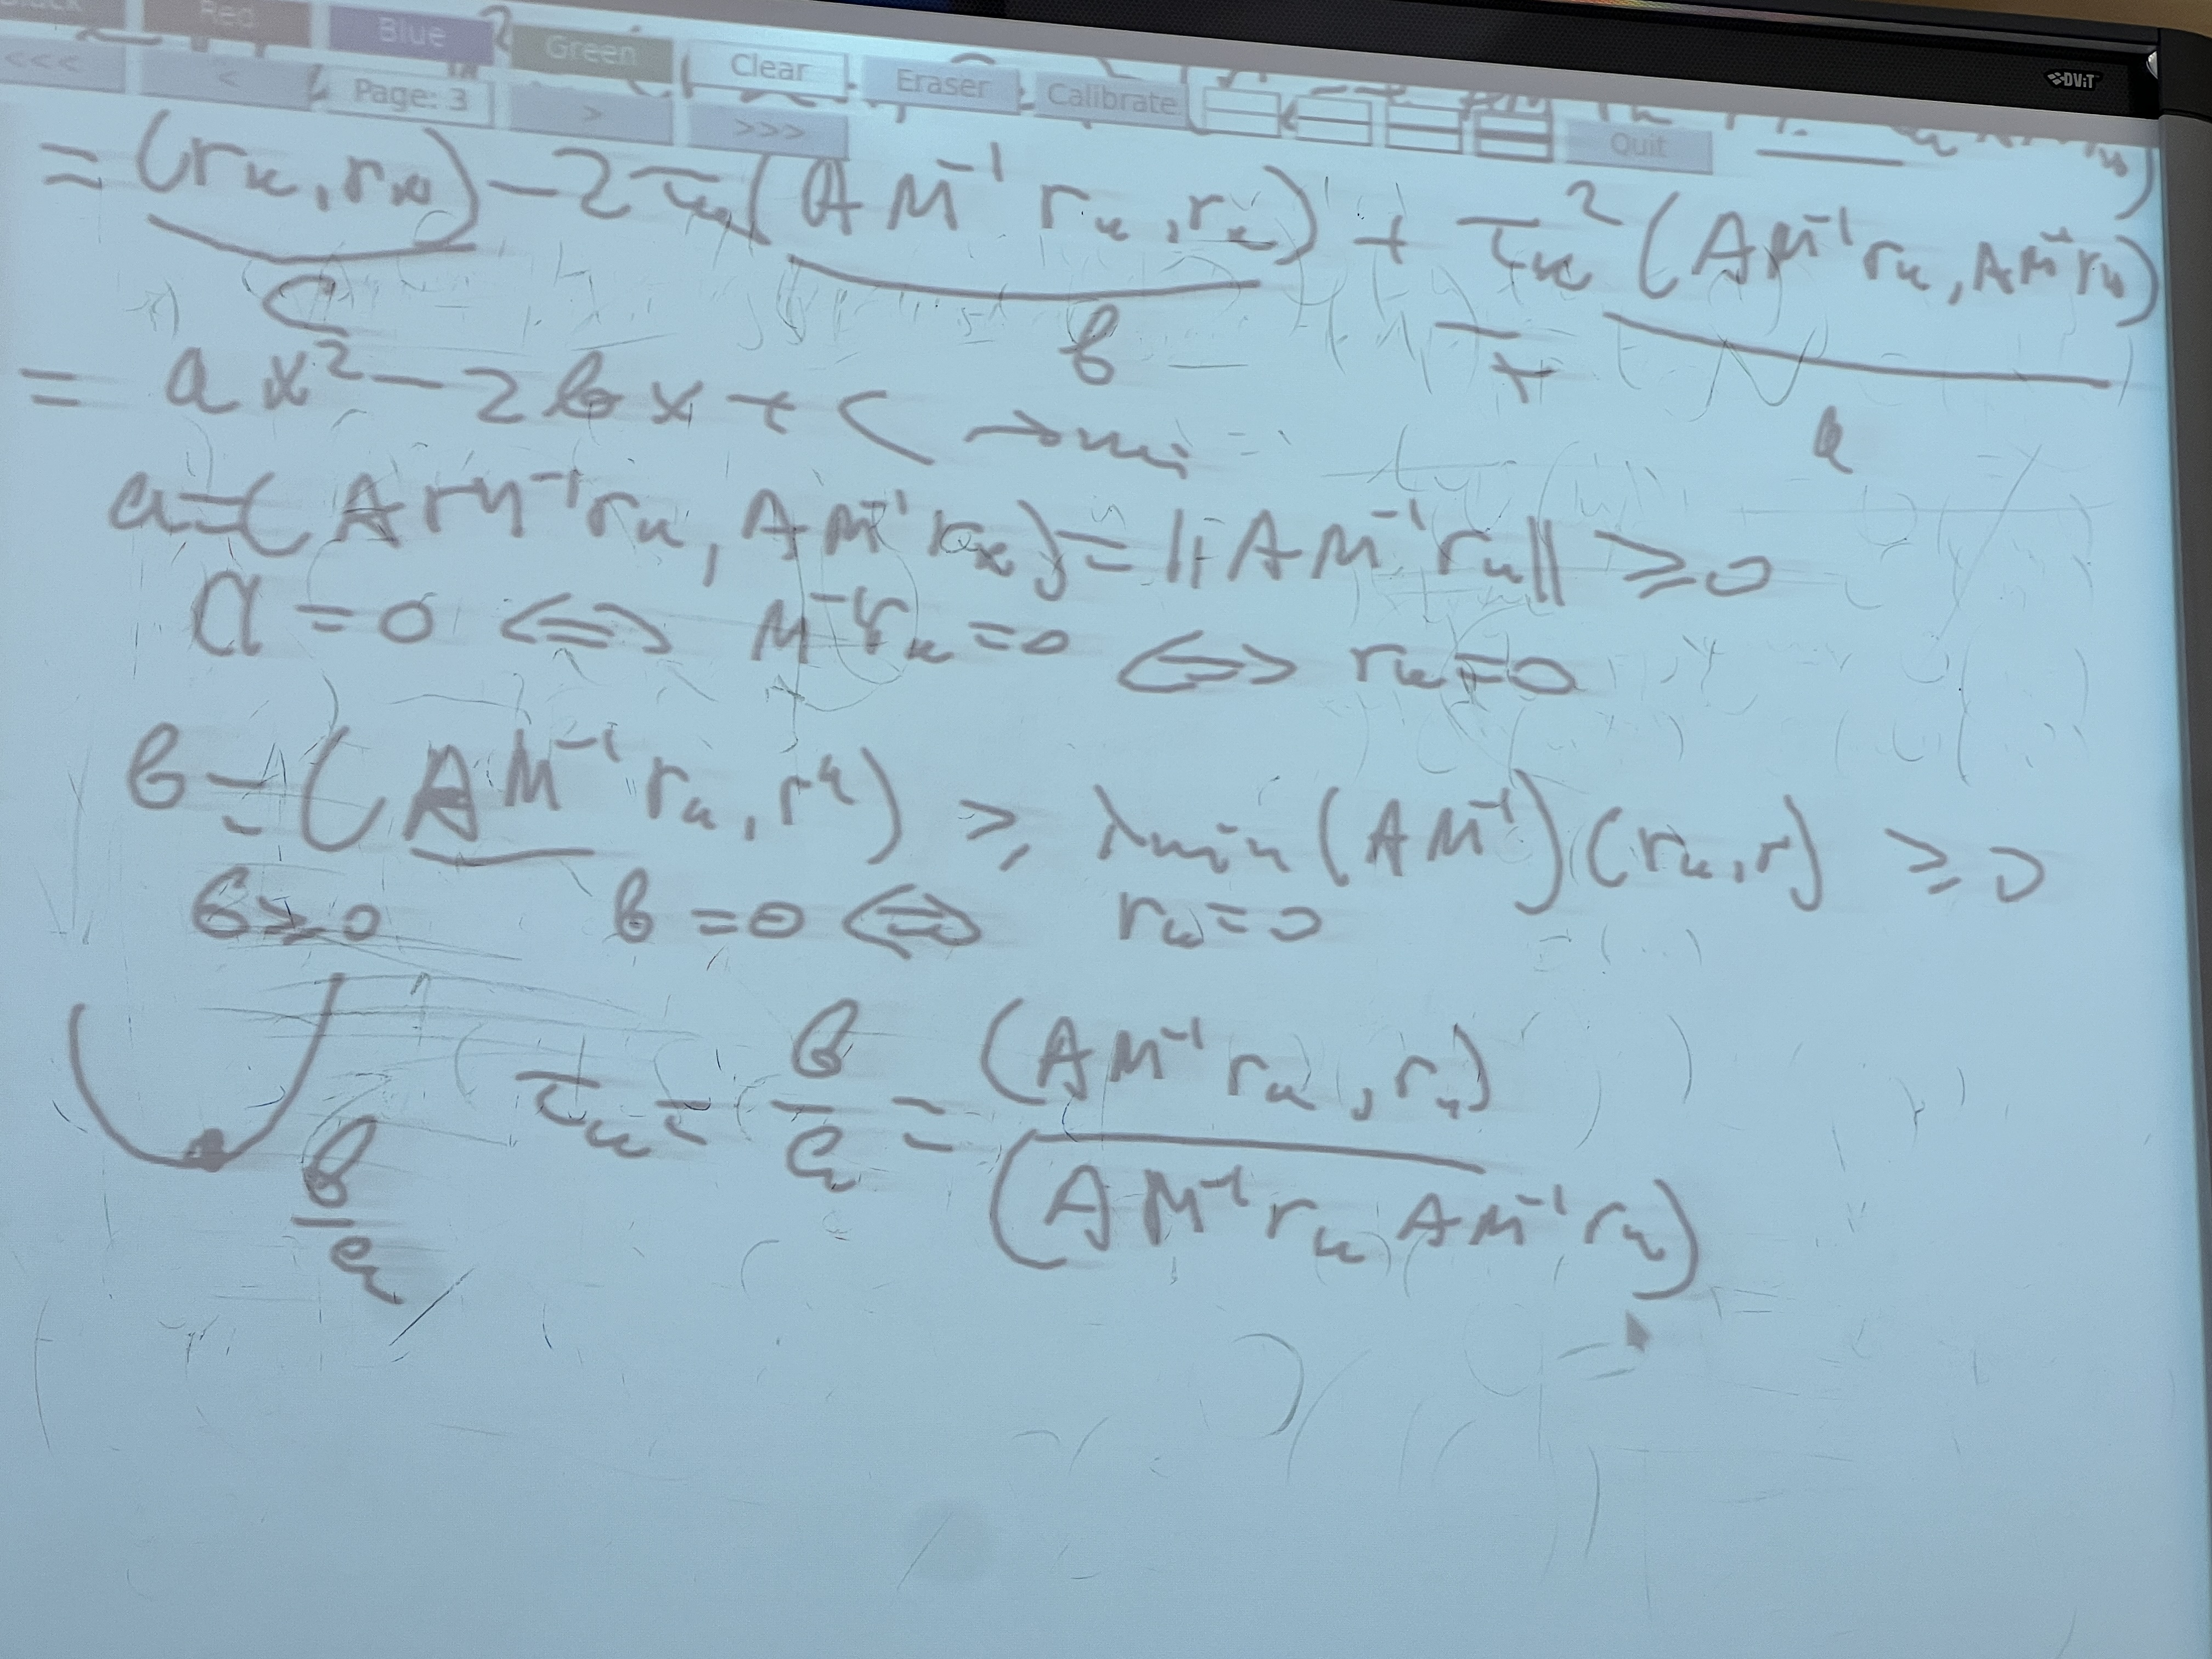 Red Blue Green Clear Eraser Calibrate Quit
<<< < Page: 3 > >>>
DViT
= (r_k, r_k) - 2τ_k (AM⁻¹ r_k, r_k) + τ_k² (AM⁻¹ r_k, AM⁻¹ r_k)
c b x a
= a x² - 2bx + c → min
a = (AM⁻¹ r_k, AM⁻¹ r_k) = ||AM⁻¹ r_k|| ≥ 0
a = 0 ⇔ M⁻¹ r_k = 0 ⇔ r_k = 0
b = (AM⁻¹ r_k, r^k) ≥ λ_min (AM⁻¹) (r_k, r) ≥ 0
b ≥ 0 b = 0 ⇔ r_k = 0
b/a τ_k = b/a = (AM⁻¹ r_k, r_k) / (AM⁻¹ r_k AM⁻¹ r_k)